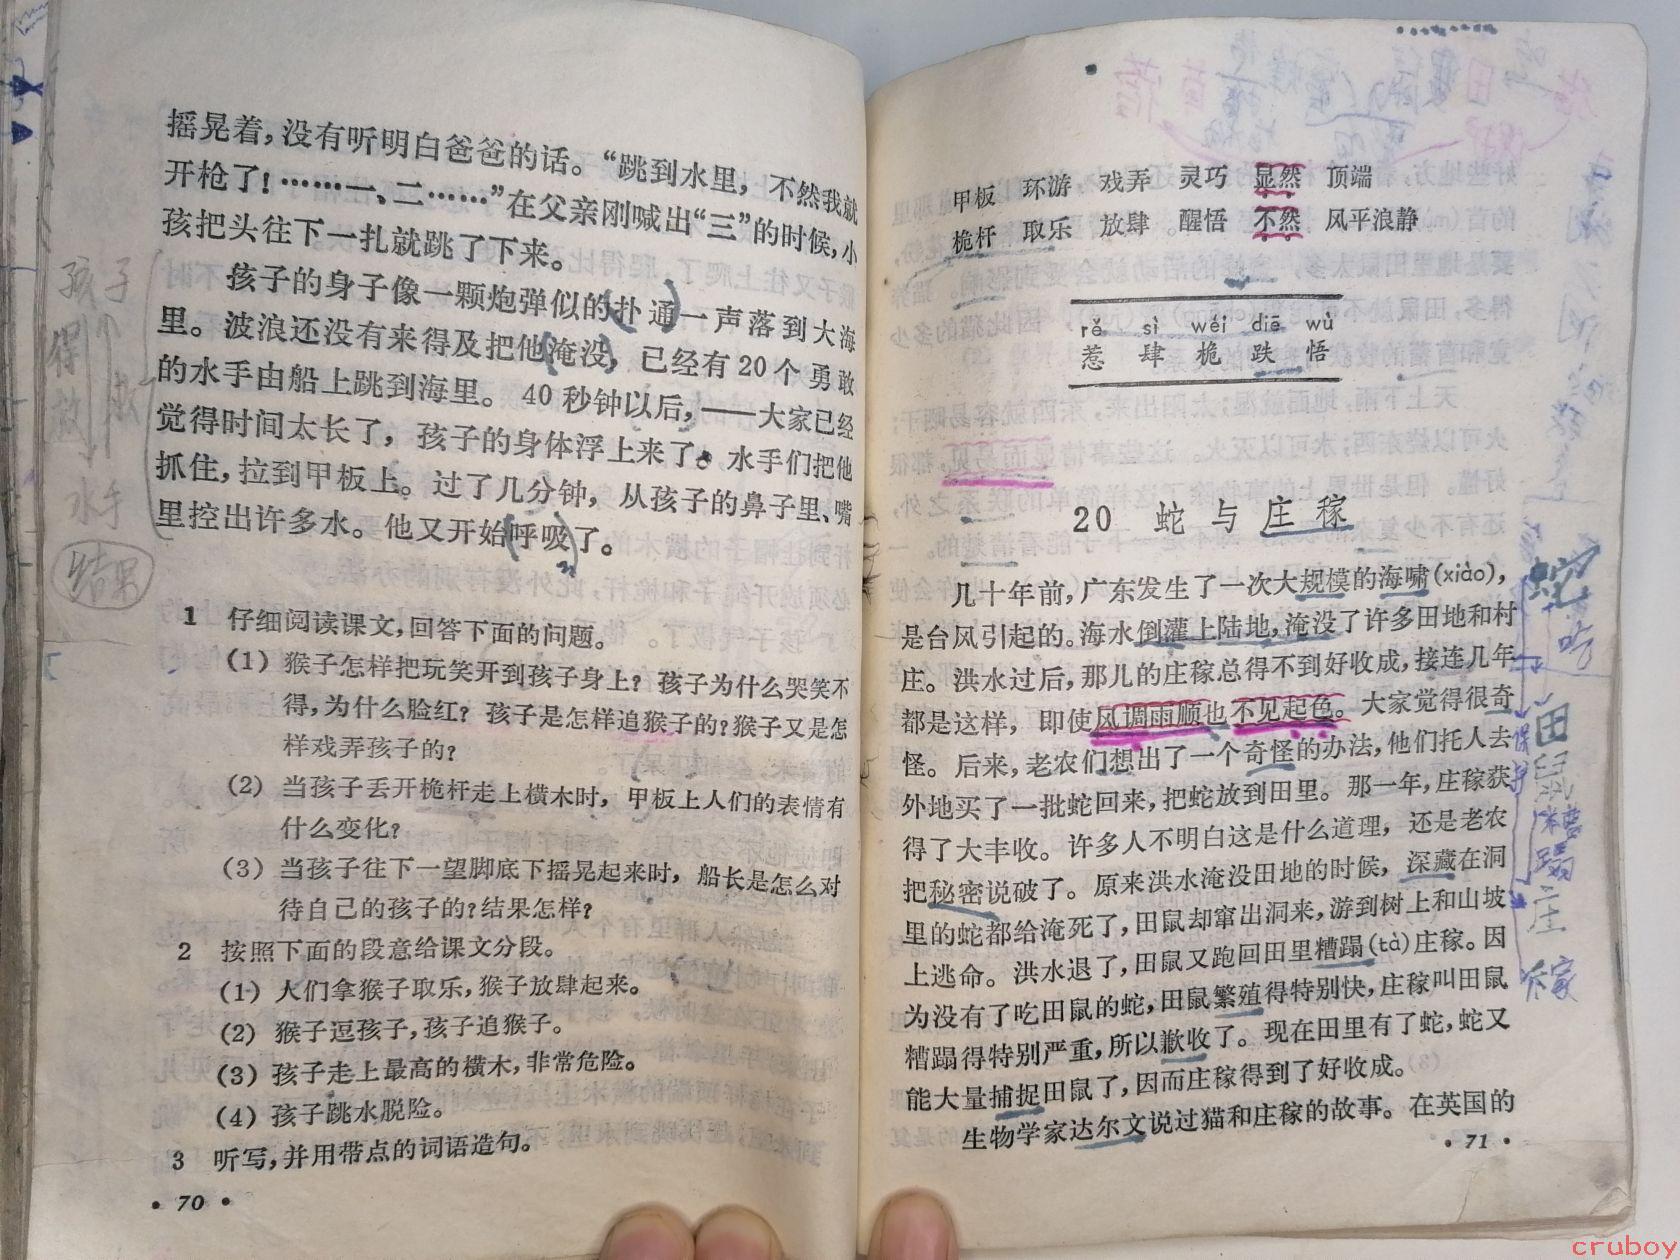 摇晃着，没有听明白爸爸的话。“跳到水里，不然我就
开枪了！……一、二……”在父亲刚喊出“三”的时候，小
孩把头往下一扎就跳了下来。
孩子的身子像一颗炮弹似的扑通一声落到大海
里。波浪还没有来得及把他淹没，已经有20个勇敢
的水手由船上跳到海里。40秒钟以后，——大家已经
觉得时间太长了，孩子的身体浮上来了。水手们把他
抓住，拉到甲板上。过了几分钟，从孩子的鼻子里、嘴
里控出许多水。他又开始呼吸了。
孩子
得救
水手
结果
1 仔细阅读课文，回答下面的问题。
(1) 猴子怎样把玩笑开到孩子身上？孩子为什么哭笑不
得，为什么脸红？孩子是怎样追猴子的？猴子又是怎
样戏弄孩子的？
(2) 当孩子丢开桅杆走上横木时，甲板上人们的表情有
什么变化？
(3) 当孩子往下一望脚底下摇晃起来时，船长是怎么对
待自己的孩子的？结果怎样？
2 按照下面的段意给课文分段。
(1) 人们拿猴子取乐，猴子放肆起来。
(2) 猴子逗孩子，孩子追猴子。
(3) 孩子走上最高的横木，非常危险。
(4) 孩子跳水脱险。
3 听写，并用带点的词语造句。
· 70 ·
甲板 环游 戏弄 灵巧 显然 顶端
桅杆 取乐 放肆 醒悟 不然 风平浪静
rě sì wéi diē wù
惹 肆 桅 跌 悟
20 蛇与庄稼
几十年前，广东发生了一次大规模的海啸(xiào)，
是台风引起的。海水倒灌上陆地，淹没了许多田地和村
庄。洪水过后，那儿的庄稼总得不到好收成，接连几年
都是这样，即使风调雨顺也不见起色。大家觉得很奇
怪。后来，老农们想出了一个奇怪的办法，他们托人去
外地买了一批蛇回来，把蛇放到田里。那一年，庄稼获
得了大丰收。许多人不明白这是什么道理，还是老农
把秘密说破了。原来洪水淹没田地的时候，深藏在洞
里的蛇都给淹死了，田鼠却窜出洞来，游到树上和山坡
上逃命。洪水退了，田鼠又跑回田里糟蹋(tà)庄稼。因
为没有了吃田鼠的蛇，田鼠繁殖得特别快，庄稼叫田鼠
糟蹋得特别严重，所以歉收了。现在田里有了蛇，蛇又
能大量捕捉田鼠了，因而庄稼得到了好收成。
生物学家达尔文说过猫和庄稼的故事。在英国的
· 71 ·
蛇
吃
田
鼠
糟
蹋
庄
稼
cruboy